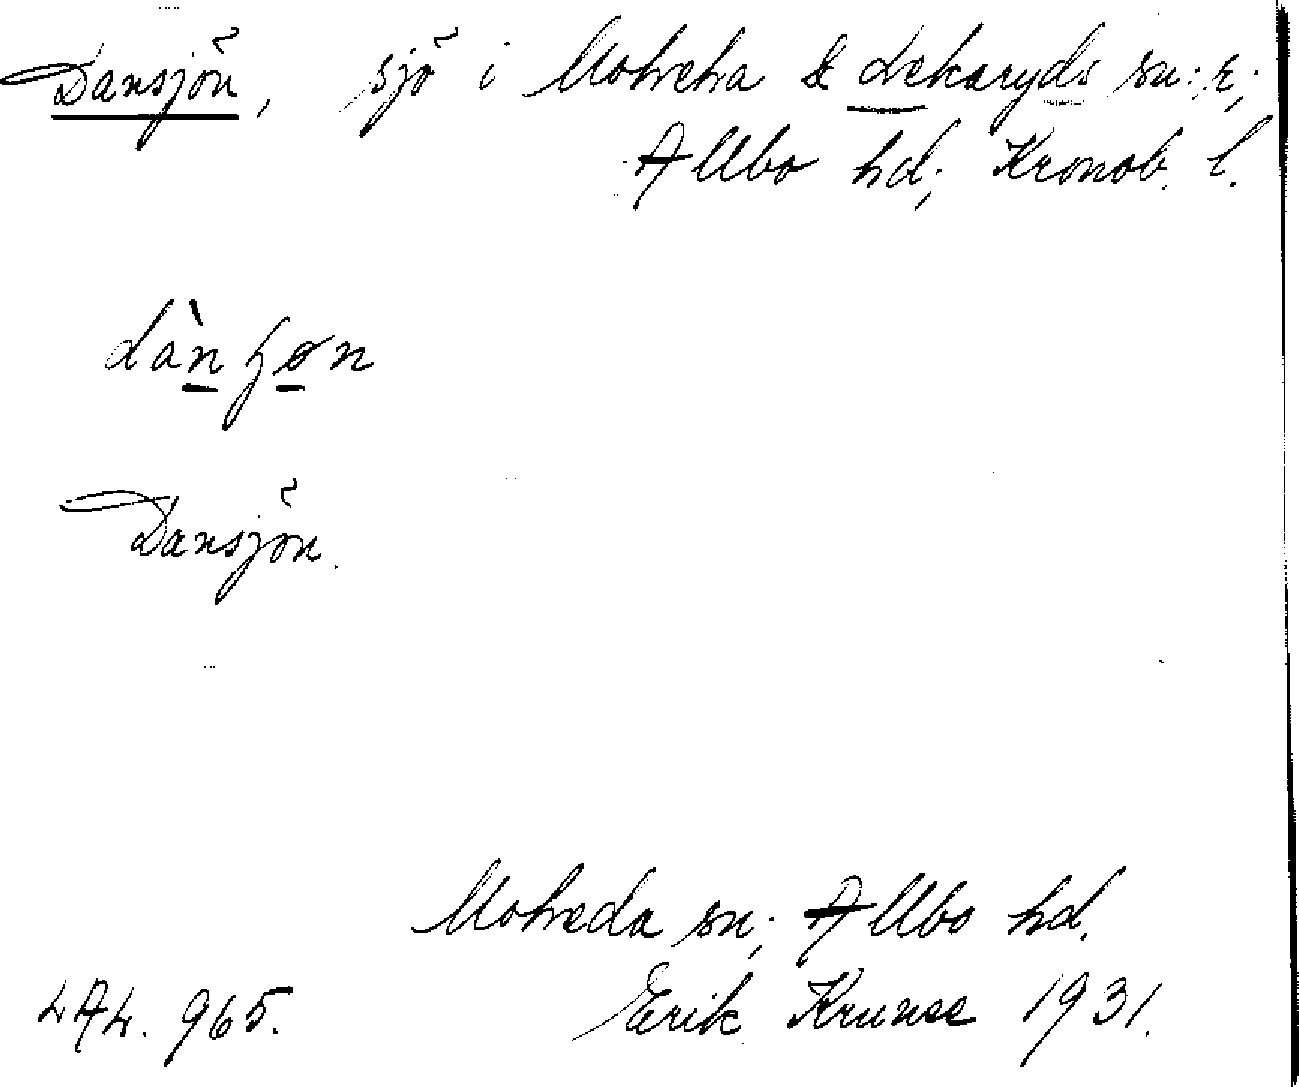 Dansjön, sjö i Moheda & Lekaryds sn:r;
Allbo hd; Kronob. l.
dànʃøn
Dansjön.
Moheda sn; Allbo hd.
LAL. 965. Erik Krunse 1931.